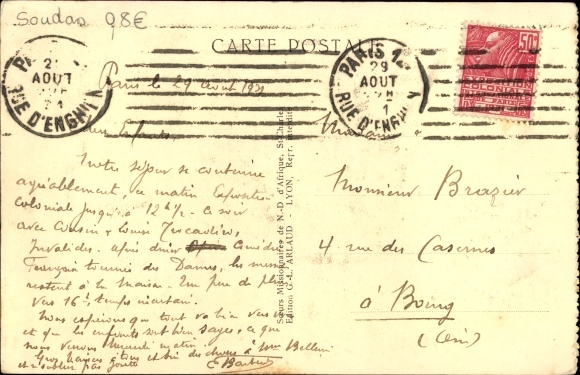 Soudan 9,8€
CARTE POSTALE
PARIS
AOUT
RUE D'ENGHIEN
PARIS
29
AOUT
RUE D'ENGHIEN
50c
EXPOSITION
COLONIALE
PARIS
Paris le 29 Août 1931
Enfants,
Notre séjour se continue
agréablement, ce matin Exposition
Coloniale jusqu'à 12h½. Ce soir
avec Cousin & Louise
Invalides. après dîner Comédie
Française tournée des Dames, les
restent à la maison. Un peu de pluie
vers 16h, temps incertain.
Nous espérons que tout va bien vers
et que les enfants sont bien sages, ce que
nous verrons matin.
Gros baisers à tous et bien des choses à Mme
pas
Sœurs Missionnaires de N.-D d'Afrique, St-Charles
Edition G.-L. ARLAUD - LYON Repr. interdite
Monsieur Brazier
4 rue des Casernes
à Bourg
(Ain)